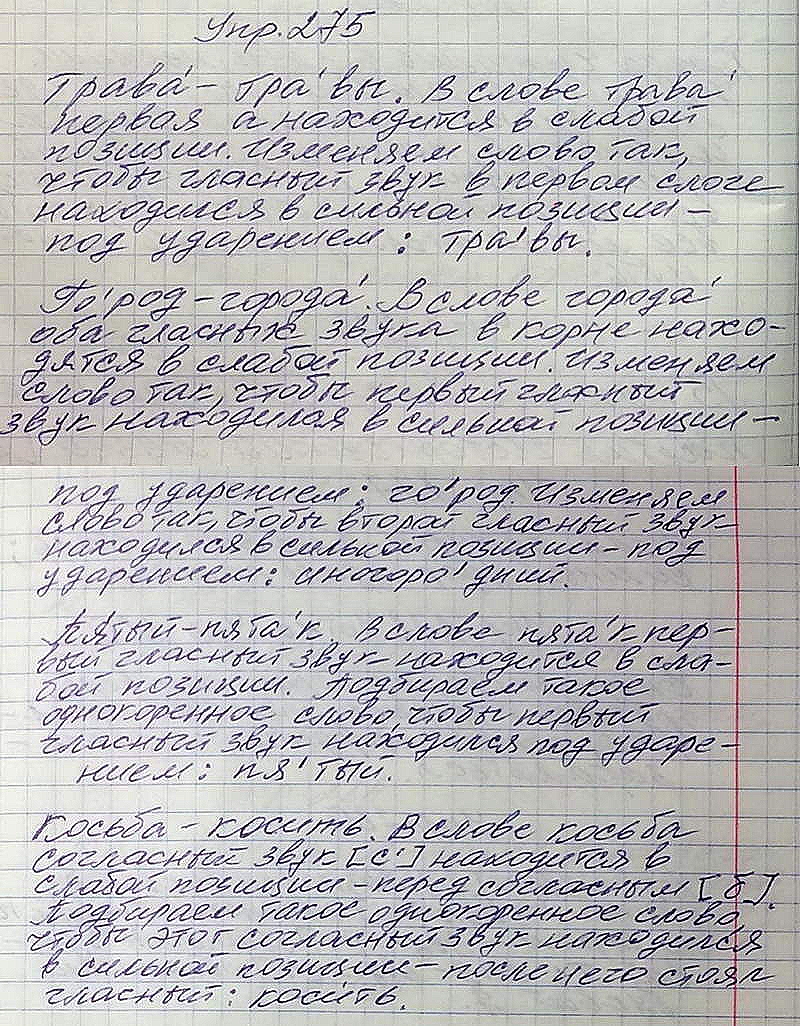 Упр. 275
Трава́ – тра́вы. В слове трава́
первая а находится в слабой
позиции. Изменяем слово так,
чтобы гласный звук в первом слоге
находился в сильной позиции –
под ударением: тра́вы.
Го́род – города́. В слове города́
оба гласных звука в корне нахо-
дятся в слабой позиции. Изменяем
слово так, чтобы первый гласный
звук находился в сильной позиции –
под ударением: го́род. Изменяем
слово так, чтобы второй гласный звук
находился в сильной позиции – под
ударением: иногоро́дний.
Пя́тый – пята́к. В слове пята́к пер-
вый гласный звук находится в сла-
бой позиции. Подбираем такое
однокоренное слово, чтобы первый
гласный звук находился под ударе-
нием: пя́тый.
Косьба – косить. В слове косьба
согласный звук [с'] находится в
слабой позиции – перед согласным [б].
Подбираем такое однокоренное слово,
чтобы этот согласный звук находился
в сильной позиции – после него стоял
гласный: косить.